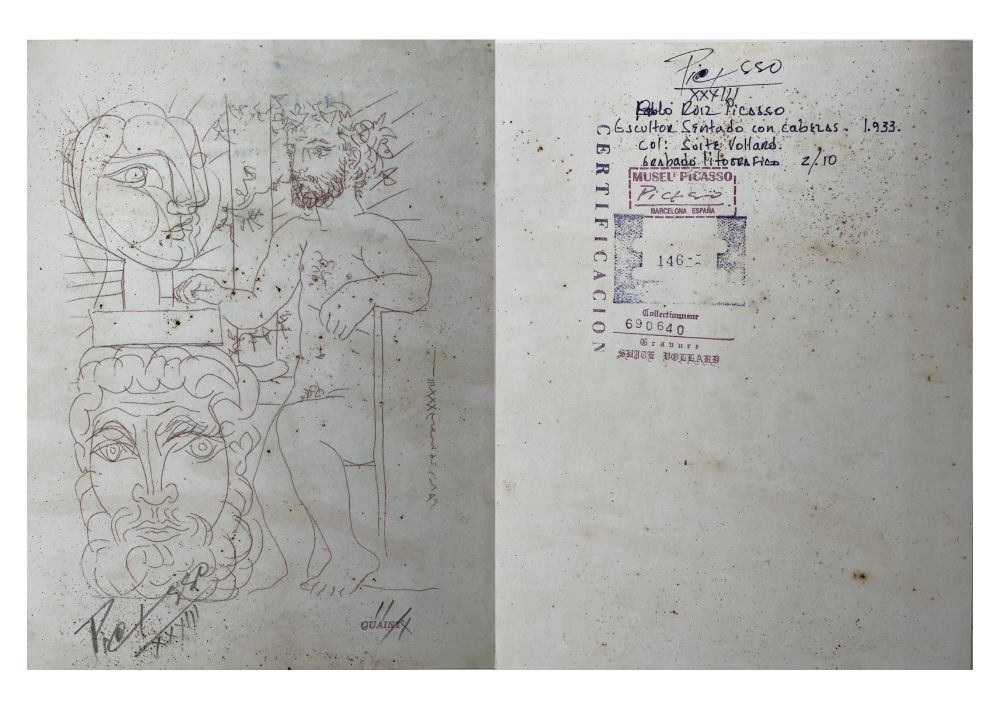 Picasso
XXXIII
II/X
QUAINT
Picasso
XXXIII
Pablo Ruiz Picasso
Escultor Sentado con cabezas - 1.933.
Col: Suite Vollard.
Grabado Litografico 2/10
MUSEU PICASSO
Picasso
BARCELONA ESPAÑA
146-
Collectionneur
690640
Gravure
SUITE VOLLARD
CERTIFICACION